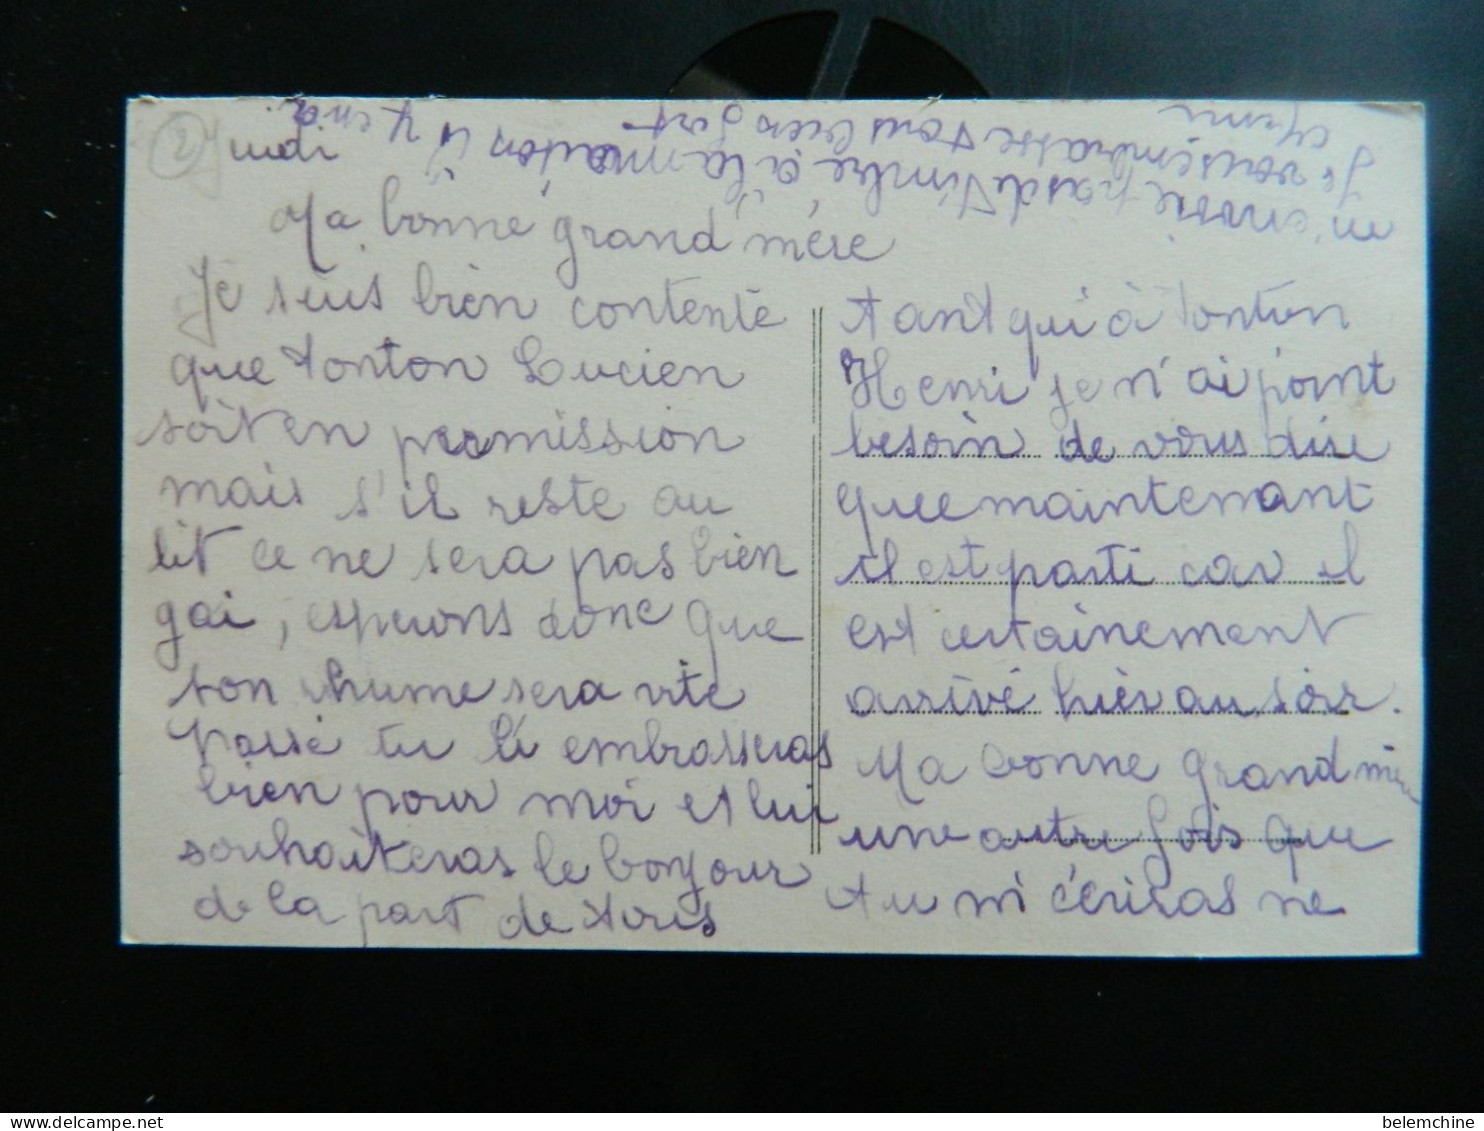 2
Jeudi
Ma bonne grand'mère
Je suis bien contente
que tonton Lucien
soit en permission
mais s'il reste au
lit ce ne sera pas bien
gai, esperons donc que
son rhume sera vite
passé tu li embrasseras
bien pour moi et lui
souhaiteras le bonjour
de la part de tous
tant qui à tonton
Henri je n'ai point
besoin de vous dire
que maintenant
il est parti car il
est certainement
arrivé hier au soir.
Ma bonne grand mère
une autre fois que
tu m'écriras ne
m'envoie pas de timbre à la maison il y en a
Je vous embrasse tous bien fort
belemchine